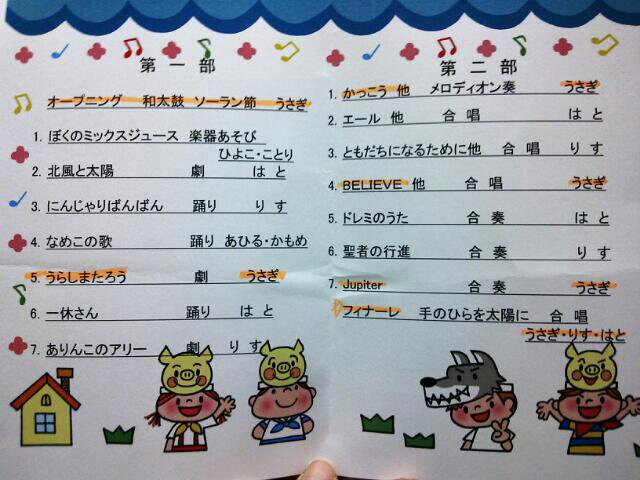 第一部
オープニング 和太鼓 ソーラン節 うさぎ
1. ぼくのミックスジュース 楽器あそび
ひよこ・ことり
2. 北風と太陽 劇 はと
3. にんじゃりばんばん 踊り りす
4. なめこの歌 踊り あひる・かもめ
5. うらしまたろう 劇 うさぎ
6. 一休さん 踊り はと
7. ありんこのアリー 劇 りす
第二部
1. かっこう 他 メロディオン奏 うさぎ
2. エール 他 合唱 はと
3. ともだちになるために他 合唱 りす
4. BELIEVE 他 合唱 うさぎ
5. ドレミのうた 合奏 はと
6. 聖者の行進 合奏 りす
7. Jupiter 合奏 うさぎ
フィナーレ 手のひらを太陽に 合唱
うさぎ・りす・はと